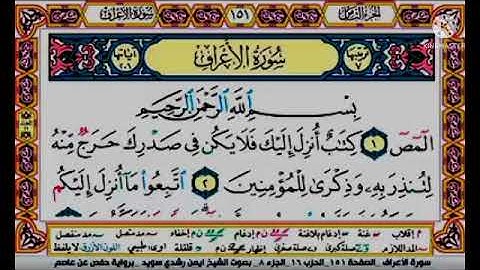 الجزء الثامن ١٥١ سورة الأعراف
ترتيبها ٧ سُورَةُ الأَعْرَافِ آياتها ٢٠٦
KINEMASTER
بِسْمِ اللَّهِ الرَّحْمَٰنِ الرَّحِيمِ
الٓمٓصٓ ١ كِتَابٌ أُنزِلَ إِلَيْكَ فَلَا يَكُن فِي صَدْرِكَ حَرَجٌ مِّنْهُ
لِتُنذِرَ بِهِ وَذِكْرَىٰ لِلْمُؤْمِنِينَ ٢ اتَّبِعُوا مَا أُنزِلَ إِلَيْكُم
سورة الأعراف _ الصفحة ١٥١_ الحزب ١٦_ الجزء ٨_ بصوت الشيخ ايمن رشدي سويد _برواية حفص عن عاصم